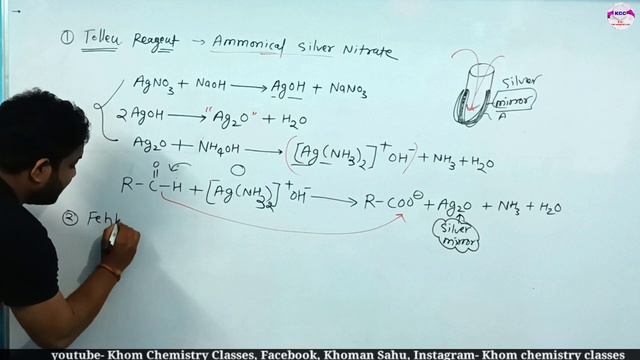 ① Tollen Reagent → Ammonical Silver Nitrate
AgNO₃ + NaOH ⟶ AgOH + NaNO₃
2AgOH ⟶ "Ag₂O" + H₂O
Ag₂O + NH₄OH ⟶ [Ag(NH₃)₂]⁺OH⁻ + NH₃ + H₂O
O
R-C-H + [Ag(NH₃)₂]⁺OH⁻ ⟶ R-COO⊖ + Ag₂O + NH₃ + H₂O
Silver
mirror
② Fehl
Silver
mirror
A
KCC
youtube- Khom Chemistry Classes, Facebook, Khoman Sahu, Instagram- Khom chemistry classes